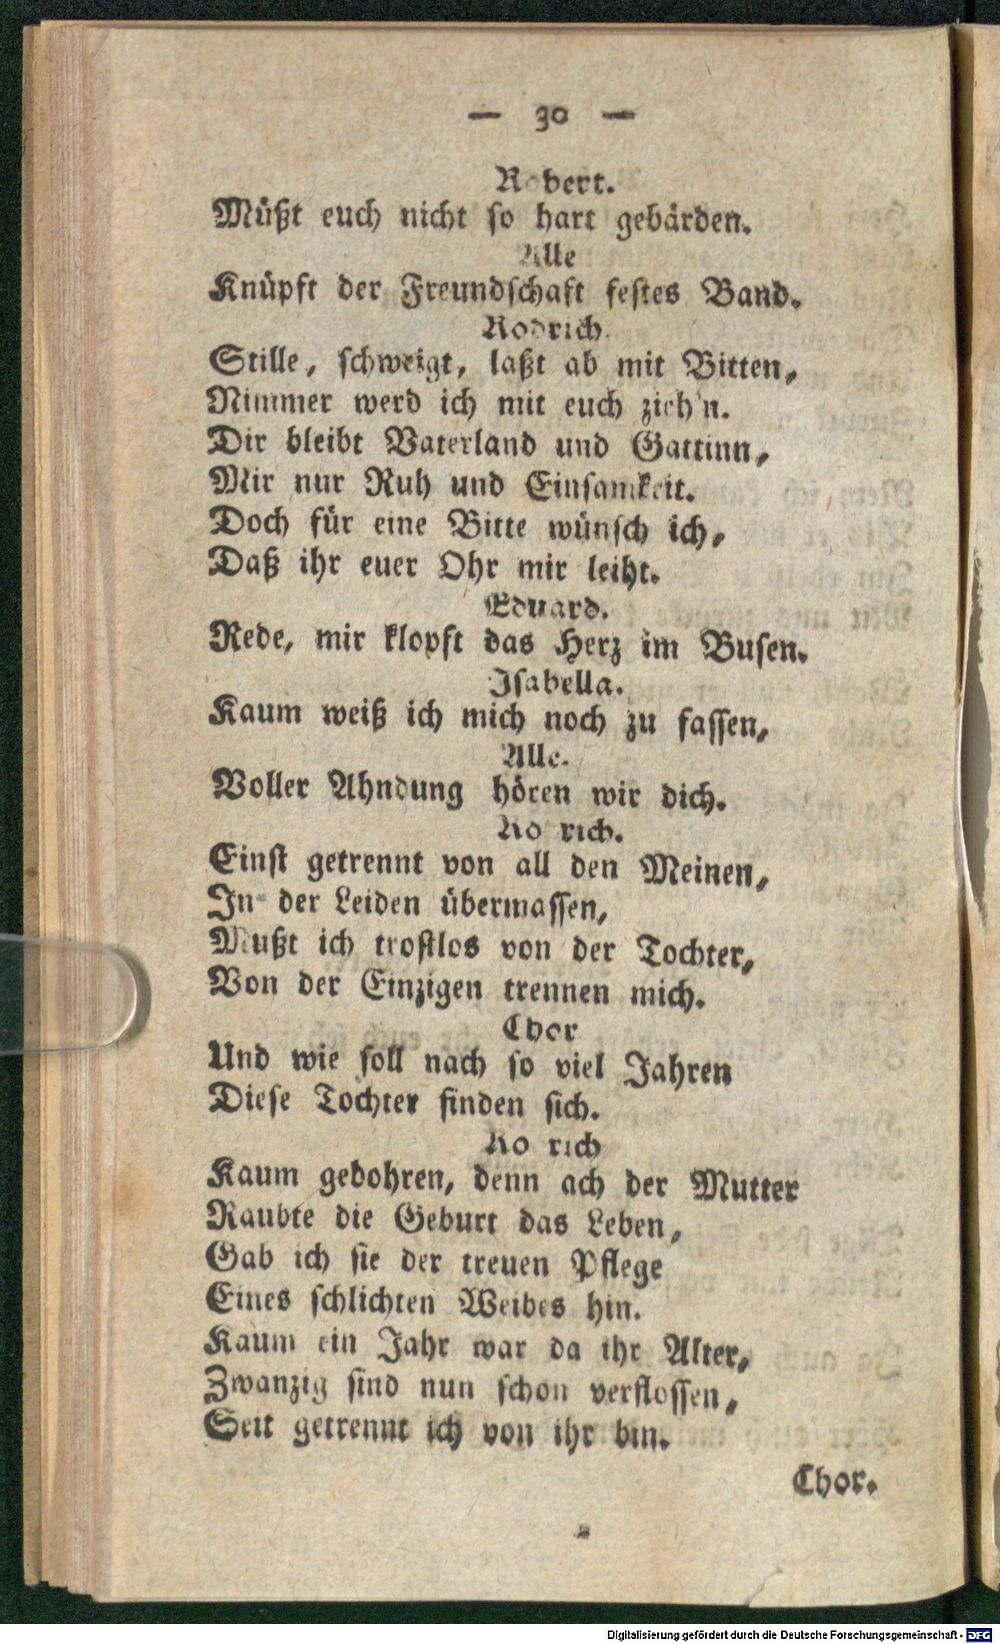 — 30 —
Robert.
Müßt euch nicht so hart gebärden.
Alle
Knüpft der Freundschaft festes Band.
Rodrich.
Stille, schweigt, laßt ab mit Bitten,
Nimmer werd ich mit euch zieh'n.
Dir bleibt Vaterland und Gattinn,
Mir nur Ruh und Einsamkeit.
Doch für eine Bitte wünsch ich,
Daß ihr euer Ohr mir leiht.
Eduard.
Rede, mir klopft das Herz im Busen.
Isabella.
Kaum weiß ich mich noch zu fassen,
Alle.
Voller Ahndung hören wir dich.
Rodrich.
Einst getrennt von all den Meinen,
In der Leiden übermassen,
Mußt ich trostlos von der Tochter,
Von der Einzigen trennen mich.
Chor
Und wie soll nach so viel Jahren
Diese Tochter finden sich.
Rodrich
Kaum gebohren, denn ach der Mutter
Raubte die Geburt das Leben,
Gab ich sie der treuen Pflege
Eines schlichten Weibes hin.
Kaum ein Jahr war da ihr Alter,
Zwanzig sind nun schon verflossen,
Seit getrennt ich von ihr bin.
Chor.
Digitalisierung gefördert durch die Deutsche Forschungsgemeinschaft - DFG